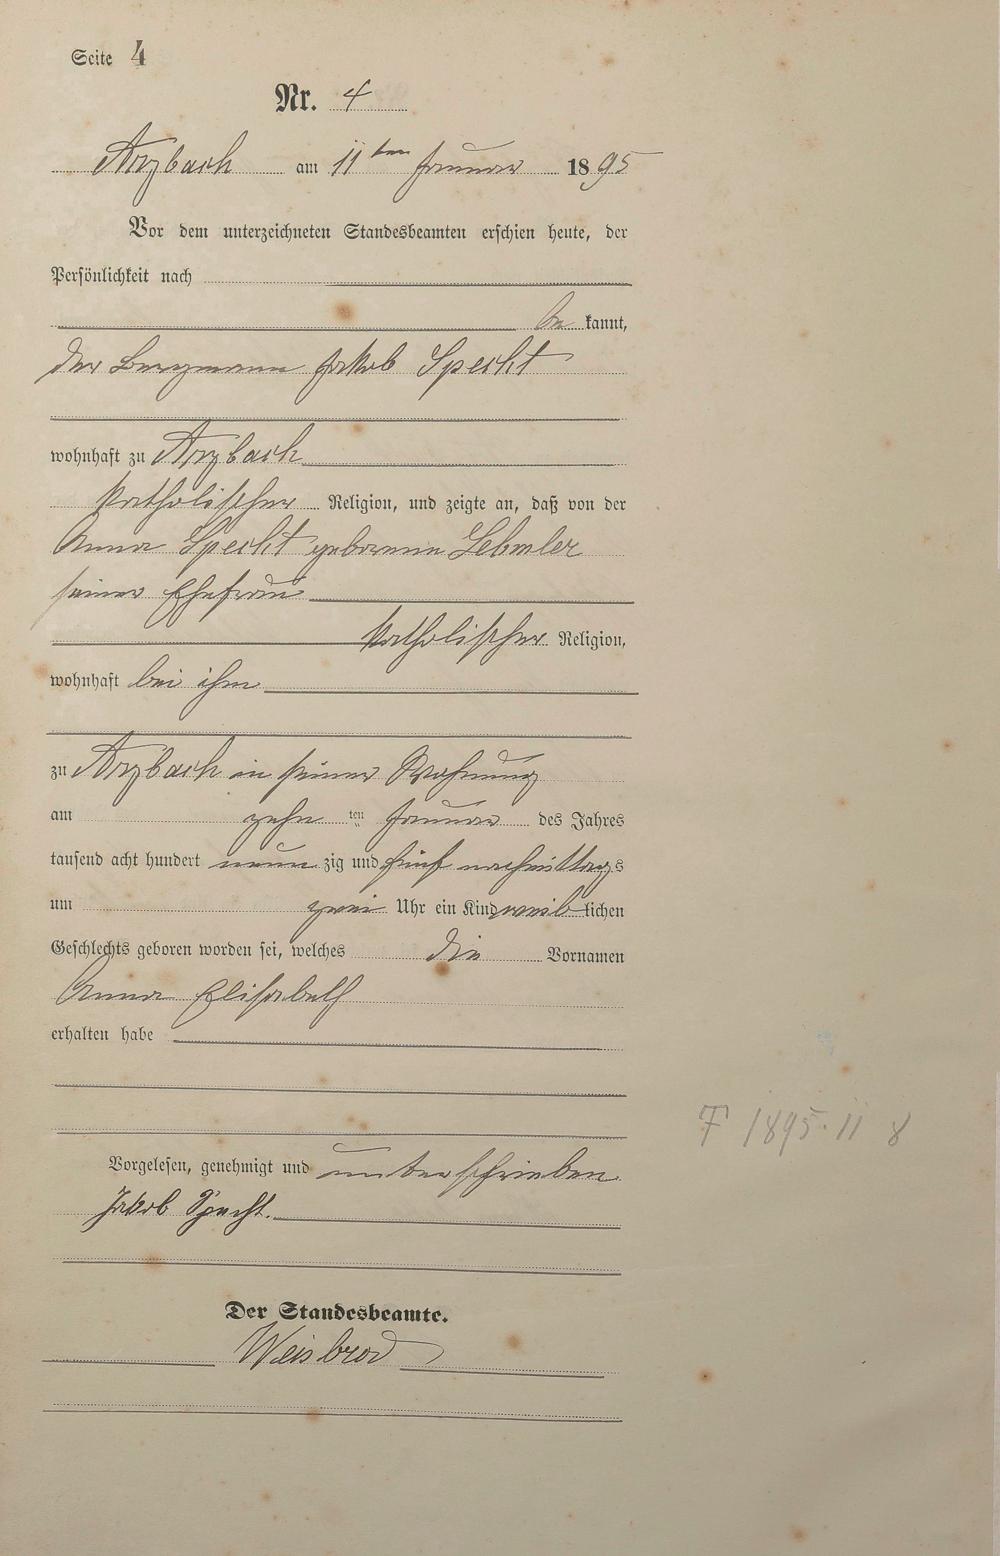 Seite 4
Nr. 4
Arzbach am 11ten Januar 1895
Vor dem unterzeichneten Standesbeamten erschien heute, der
Persönlichkeit nach
be kannt,
der Bergmann Jakob Specht
wohnhaft zu Arzbach
katholischer Religion, und zeigte an, daß von der
Anna Specht geborenen
seiner Ehefrau
katholischer Religion,
wohnhaft bei ihm
zu Arzbach in seiner Wohnung
am zehn ten Januar des Jahres
tausend acht hundert neun zig und fünf nachmittags
um zwei Uhr ein Kind weiblichen
Geschlechts geboren worden sei, welches die Vornamen
Anna Elisabeth
erhalten habe
Vorgelesen, genehmigt und unterschrieben
Jakob Specht.
Der Standesbeamte.
Weisbrod
1895. 11 8